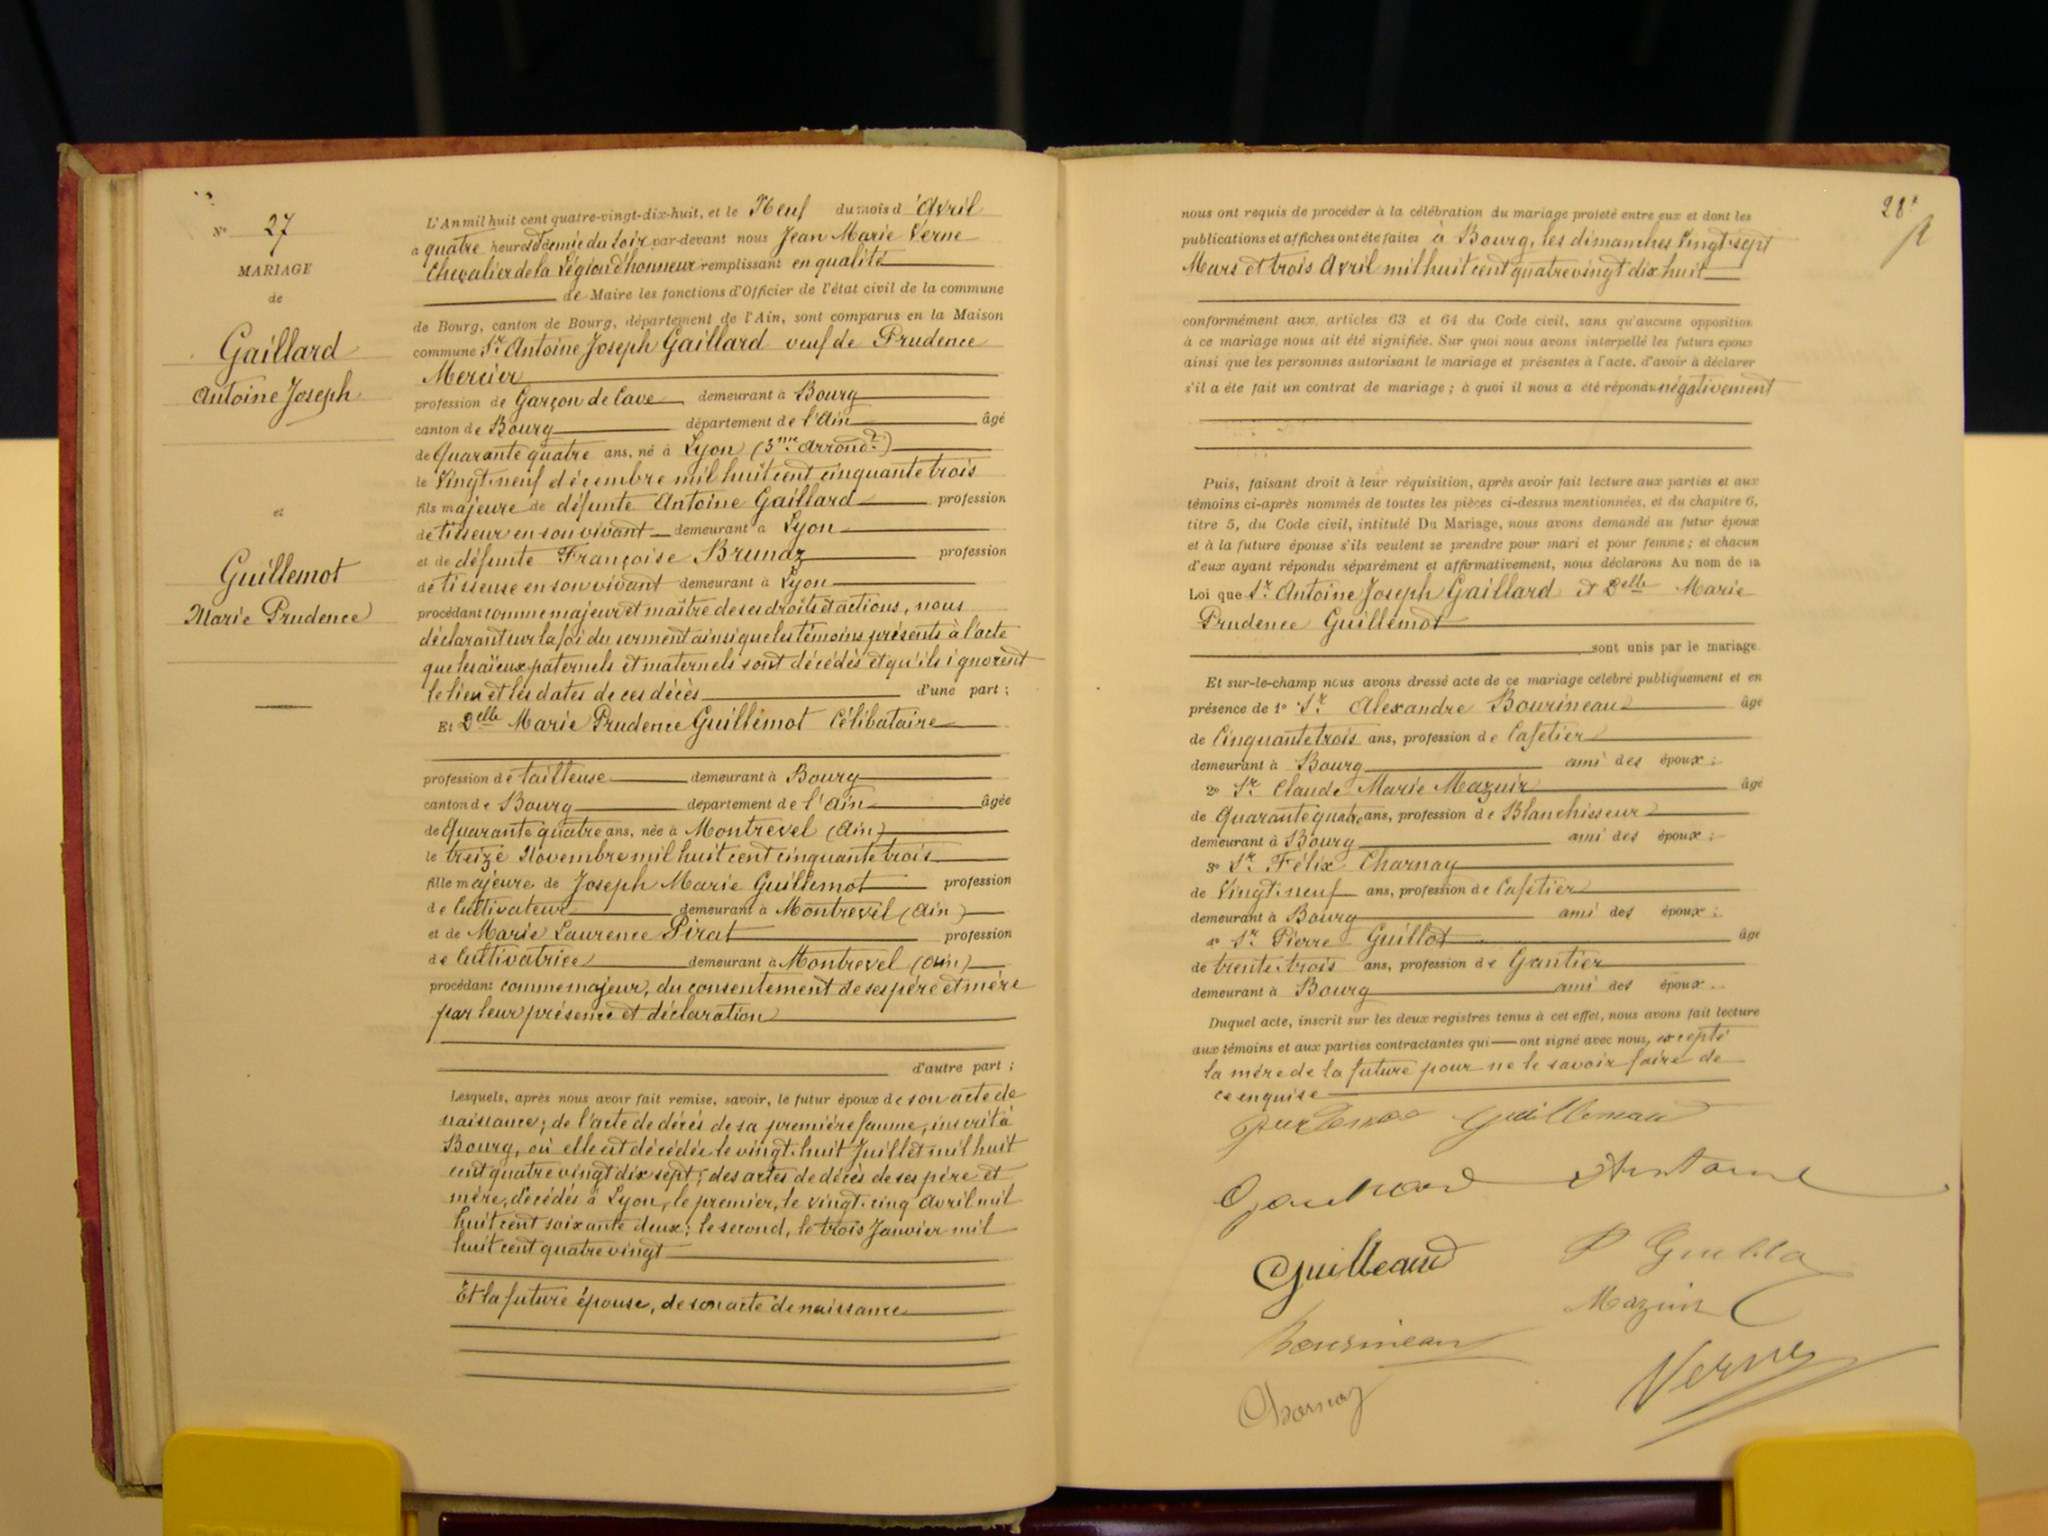 Nº 27
MARIAGE
de
Gaillard
Antoine Joseph
et
Guillemot
Marie Prudence
L'An mil huit cent quatre-vingt-dix-huit, et le Neuf du mois d'Avril
a quatre heures et demie du soir par-devant nous Jean Marie Verne
Chevalier de la Légion d'honneur remplissant en qualité
de Maire les fonctions d'Officier de l'état civil de la commune
de Bourg, canton de Bourg, département de l'Ain, sont comparus en la Maison
commune Sr. Antoine Joseph Gaillard veuf de Prudence
Mercier
profession de Garçon de Cave demeurant à Bourg
canton de Bourg département de l'Ain âgé
de Quarante quatre ans, né à Lyon (3me Arrondt.)
le Vingt-neuf décembre mil huit cent cinquante trois
fils majeure de défunte Antoine Gaillard profession
de tisseur en son vivant demeurant à Lyon
et de défunte Françoise Brunaz profession
de tisseuse en son vivant demeurant à Lyon
procédant comme majeur et maître de ses droits et actions, nous
déclarant sur la foi du serment ainsi que les témoins présents à l'acte
que les aïeux paternels et maternels sont décédés et qu'ils ignorent
le lieu et les dates de ces décès d'une part ;
Et Delle Marie Prudence Guillemot Célibataire
profession de tailleuse demeurant à Bourg
canton de Bourg département de l'Ain âgée
de Quarante quatre ans, née à Montrevel (Ain)
le treize Novembre mil huit cent cinquante trois
fille majeure de Joseph Marie Guillemot profession
de Cultivateur demeurant à Montrevel (Ain)
et de Marie Laurence Pirat profession
de Cultivatrice demeurant à Montrevel (Ain)
procédant comme majeur, du consentement de ses père et mère
par leur présence et déclaration
d'autre part ;
Lesquels, après nous avoir fait remise, savoir, le futur époux de son acte de
naissance ; de l'acte de décès de sa première femme, inscrit à
Bourg, où elle est décédée le vingt-huit Juillet mil huit
cent quatre vingt dix sept ; des actes de décès de ses père et
mère, décédés à Lyon, le premier, le vingt-cinq Avril mil
huit cent soixante deux ; le second, le trois Janvier mil
huit cent quatre vingt
Et la future épouse, de son acte de naissance
28
nous ont requis de procéder à la célébration du mariage projeté entre eux et dont les
publications et affiches ont été faites à Bourg, les dimanches Vingt-sept
Mars et trois Avril mil huit cent quatre vingt dix huit
conformément aux articles 63 et 64 du Code civil, sans qu'aucune opposition
à ce mariage nous ait été signifiée. Sur quoi nous avons interpellé les futurs époux
ainsi que les personnes autorisant le mariage et présentes à l'acte, d'avoir à déclarer
s'il a été fait un contrat de mariage ; à quoi il nous a été répondu négativement
Puis, faisant droit à leur réquisition, après avoir fait lecture aux parties et aux
témoins ci-après nommés de toutes les pièces ci-dessus mentionnées, et du chapitre 6,
titre 5, du Code civil, intitulé Du Mariage, nous avons demandé au futur époux
et à la future épouse s'ils veulent se prendre pour mari et pour femme ; et chacun
d'eux ayant répondu séparément et affirmativement, nous déclarons Au nom de la
Loi que Sr. Antoine Joseph Gaillard et Delle Marie
Prudence Guillemot
sont unis par le mariage.
Et sur-le-champ nous avons dressé acte de ce mariage célébré publiquement et en
présence de 1º Sr. Alexandre Bourineau âgé
de Cinquante trois ans, profession de Cafetier
demeurant à Bourg ami des époux ;
2º Sr. Claude Marie Mazuir âgé
de Quarante quatre ans, profession de Blanchisseur
demeurant à Bourg ami des époux ;
3º Sr. Félix Charnay
de Vingt-neuf ans, profession de Cafetier
demeurant à Bourg ami des époux ;
4º Sr. Pierre Guillot âgé
de trente-trois ans, profession de Gantier
demeurant à Bourg ami des époux.
Duquel acte, inscrit sur les deux registres tenus à cet effet, nous avons fait lecture
aux témoins et aux parties contractantes qui ont signé avec nous, excepté
la mère de la future pour ne le savoir faire de
ce enquise
Antoine
Guilleaud
Mazuir
Bourineau
Charnay
Verne